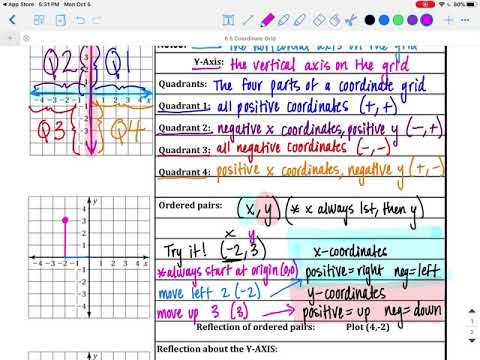 App Store 5:31 PM Mon Oct 5
80%
6.5 Coordinate Grid
the horizontal axis on the grid
Y-Axis: the vertical axis on the grid
Quadrants: The four parts of a coordinate grid
Quadrant 1: all positive coordinates (+, +)
Quadrant 2: negative x coordinates, positive y (-, +)
Quadrant 3: all negative coordinates (-, -)
Quadrant 4: positive x coordinates, negative y (+, -)
Q2 Q1
-4 -3 -2 -1 1 2 3 4 x
Q3 Q4
Ordered pairs: (x, y) (* x always 1st, then y)
x y
Try it! (-2, 3)
*always start at origin (0,0)
move left 2 (-2)
move up 3 (3)
x-coordinates
positive = right neg = left
y-coordinates
positive = up neg = down
y
4
3
2
1
-4 -3 -2 -1 1 2 3 4 x
-1
-2
-3
-4
Reflection of ordered pairs: Plot (4,-2)
Reflection about the Y-AXIS: